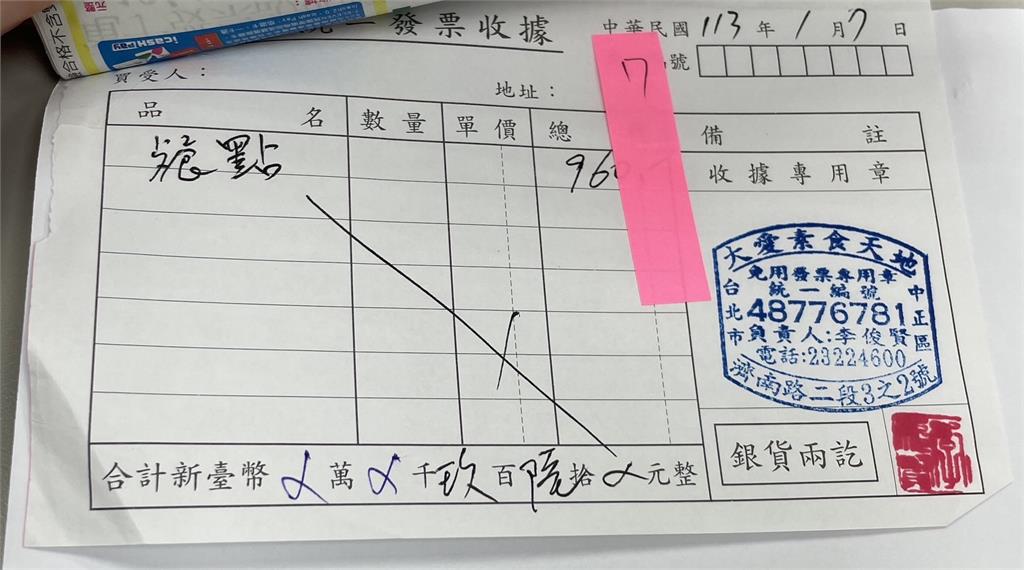 發票收據
中華民國 113 年 1 月 7 日
號
7
買受人：
地址：
品 名 數量 單價 總 備 註
餐點 960 收據專用章
大愛素食天地
免用發票專用章
統一編號
48776781
負責人:李俊賢
電話:23224600
台北市 中正區
濟南路二段3之2號
合計新臺幣 ㄨ 萬 ㄨ 千 玖 百 陸 拾 ㄨ 元整
銀貨兩訖
icash Pay